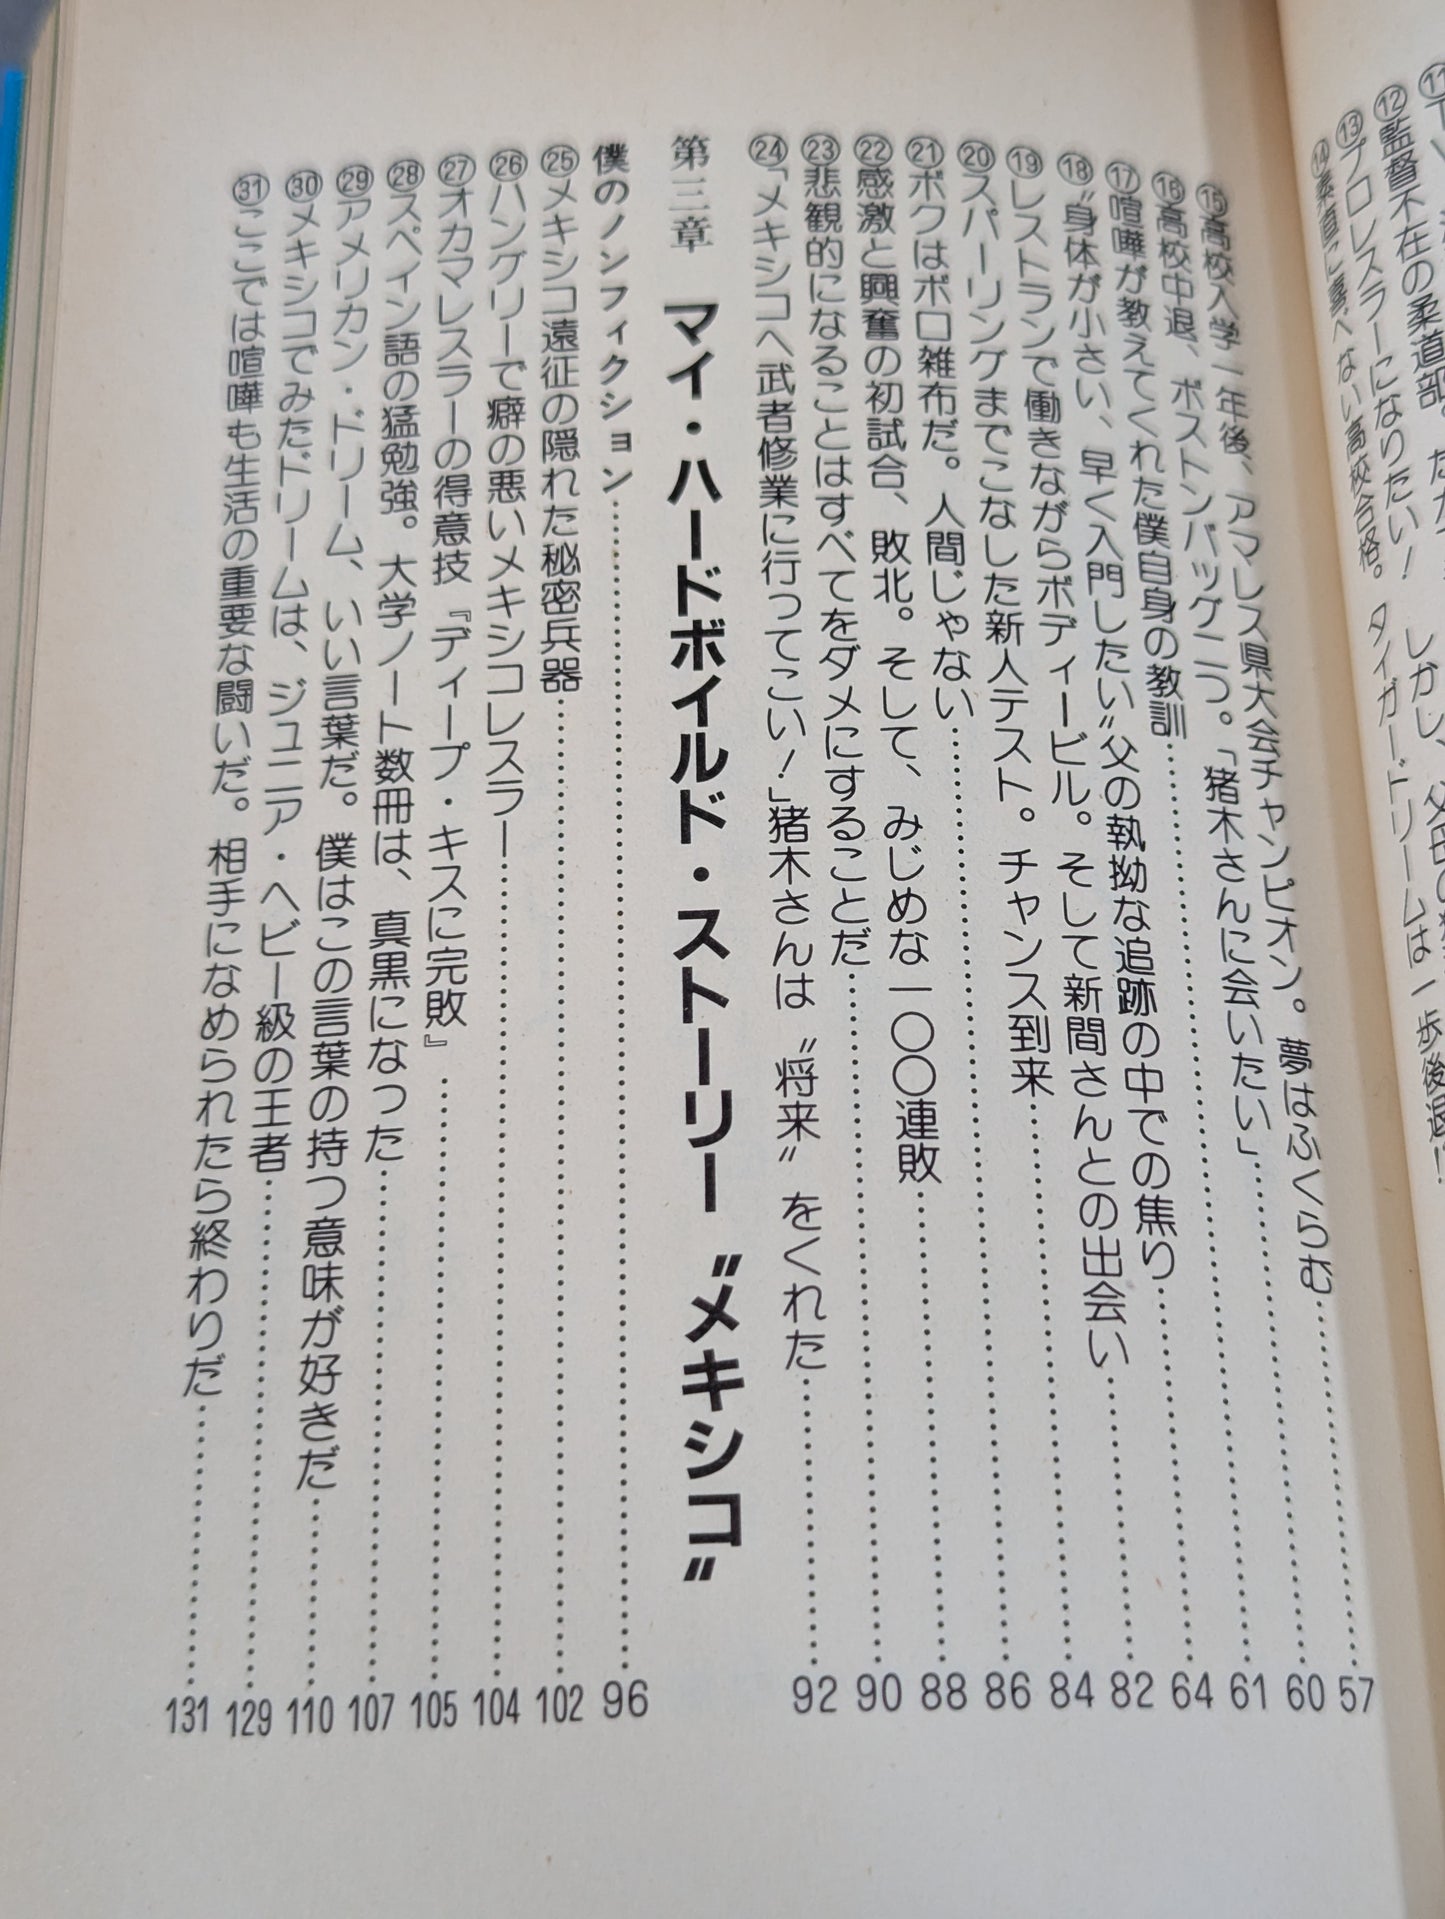 ⑫監督不在の柔道部。
しかし、父母の
⑬プロレスラーになりたい！ タイガードリームは一歩後退!?
⑭素直に喜べない高校合格。
⑮高校入学一年後、アマレス県大会チャンピオン。夢はふくらむ……57
⑯高校中退、ボストンバッグ二つ。「猪木さんに会いたい」……60
⑰喧嘩が教えてくれた僕自身の教訓……61
⑱〝身体が小さい、早く入門したい〟父の執拗な追跡の中での焦り……64
⑲レストランで働きながらボディービル。そして新間さんとの出会い……82
⑳スパーリングまでこなした新人テスト。チャンス到来……84
㉑ボクはボロ雑布だ。人間じゃない……86
㉒感激と興奮の初試合、敗北。そして、みじめな一〇〇連敗……88
㉓悲観的になることはすべてをダメにすることだ……90
㉔「メキシコへ武者修業に行ってこい！」猪木さんは〝将来〟をくれた……92
第三章 マイ・ハードボイルド・ストーリー〝メキシコ〟
僕のノンフィクション……96
㉕メキシコ遠征の隠れた秘密兵器……102
㉖ハングリーで癖の悪いメキシコレスラー……104
㉗オカマレスラーの得意技『ディープ・キスに完敗』……105
㉘スペイン語の猛勉強。大学ノート数冊は、真黒になった……107
㉙アメリカン・ドリーム、いい言葉だ。僕はこの言葉の持つ意味が好きだ……110
㉚メキシコでみたドリームは、ジュニア・ヘビー級の王者……129
㉛ここでは喧嘩も生活の重要な闘いだ。相手になめられたら終わりだ……131